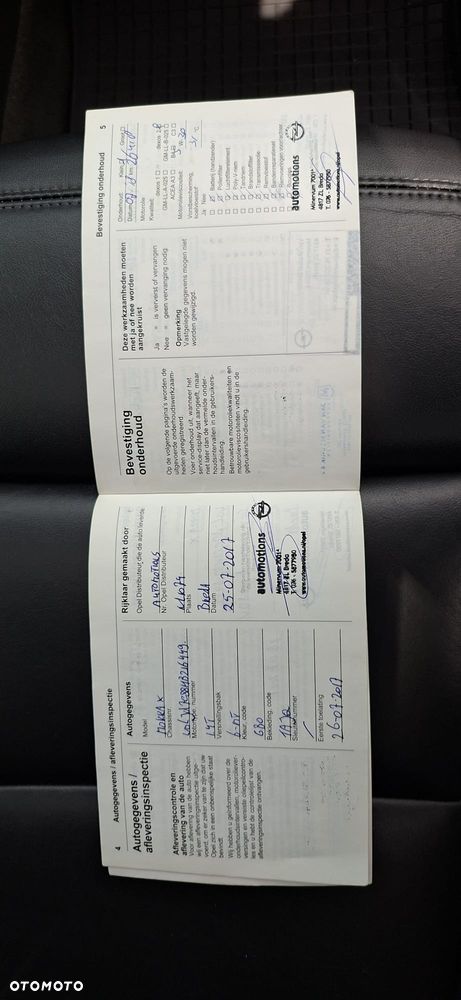 4
Autogegevens / afleveringsinspectie
Autogegevens /
afleveringsinspectie
Afleveringscontrole en
aflevering van de auto
Voor aflevering van de auto hebben
wij een afleveringsinspectie uitge-
voerd, om er zeker van te zijn dat uw
Opel zich in een onberispelijke staat
bevindt.
Wij hebben u geïnformeerd over de
onderhoudsintervallen, motoroliever-
versingen en vereiste oliepeilcontro-
les en u hebt de controlelijst van de
afleveringsinspectie ontvangen.
Autogegevens
Model
MOKKA X
Chassisnr.
Motortype, nummer
1.4T
Versnellingsbak
6-MT
Kleur, code
GB0
Bekleding, code
Sleutelnummer
Eerste toelating
26-07-2017
Rijklaar gemaakt door
Opel Distributeur, die de auto leverde
AUTOMOTIONS
Nr. Opel Distributeur
Plaats
Breda
Datum
25-07-2017
automotions
Minervum 7001
4817 ZL Breda
T. 076 - 5877980
Bevestiging onderhoud
5
Bevestiging
onderhoud
Op de volgende pagina's worden de
uitgevoerde onderhoudswerkzaam-
heden geregistreerd.
Voer onderhoud uit, wanneer het
service-display dat aangeeft, maar
niet later dan de vermelde onder-
houdsintervallen in de gebruikers-
handleiding.
Betrouwbare motoroliekwaliteiten en
motorolieviscositeiten vindt u in de
gebruikershandleiding.
Deze werkzaamheden moeten
met ja of nee worden
aangekruist
Ja = is ververst of vervangen
Nee = geen vervanging nodig
Opmerking
Vastgelegde gegevens mogen niet
worden gewijzigd.
Onderhoud: Klein Groot
Datum km
Motorolie
Kwaliteit: dexos 1 dexos 2
GM-LL-A-025 GM-LL-B-025
ACEA A3 C3
Motorolieviscositeit: W-30
Vorstbescherming,
koelvloeistof: °C
Ja Nee
Batterij (handzender)
Pollenfilter
Luchtfilterelement
Poly-V-riem
Tandriem
Brandstoffilter
Transmissieolie
Remvloeistof
Bandenreparatieset
automotions
Minervum 7001
4817 ZL Breda
T. 076 - 5877980
OTOMOTO